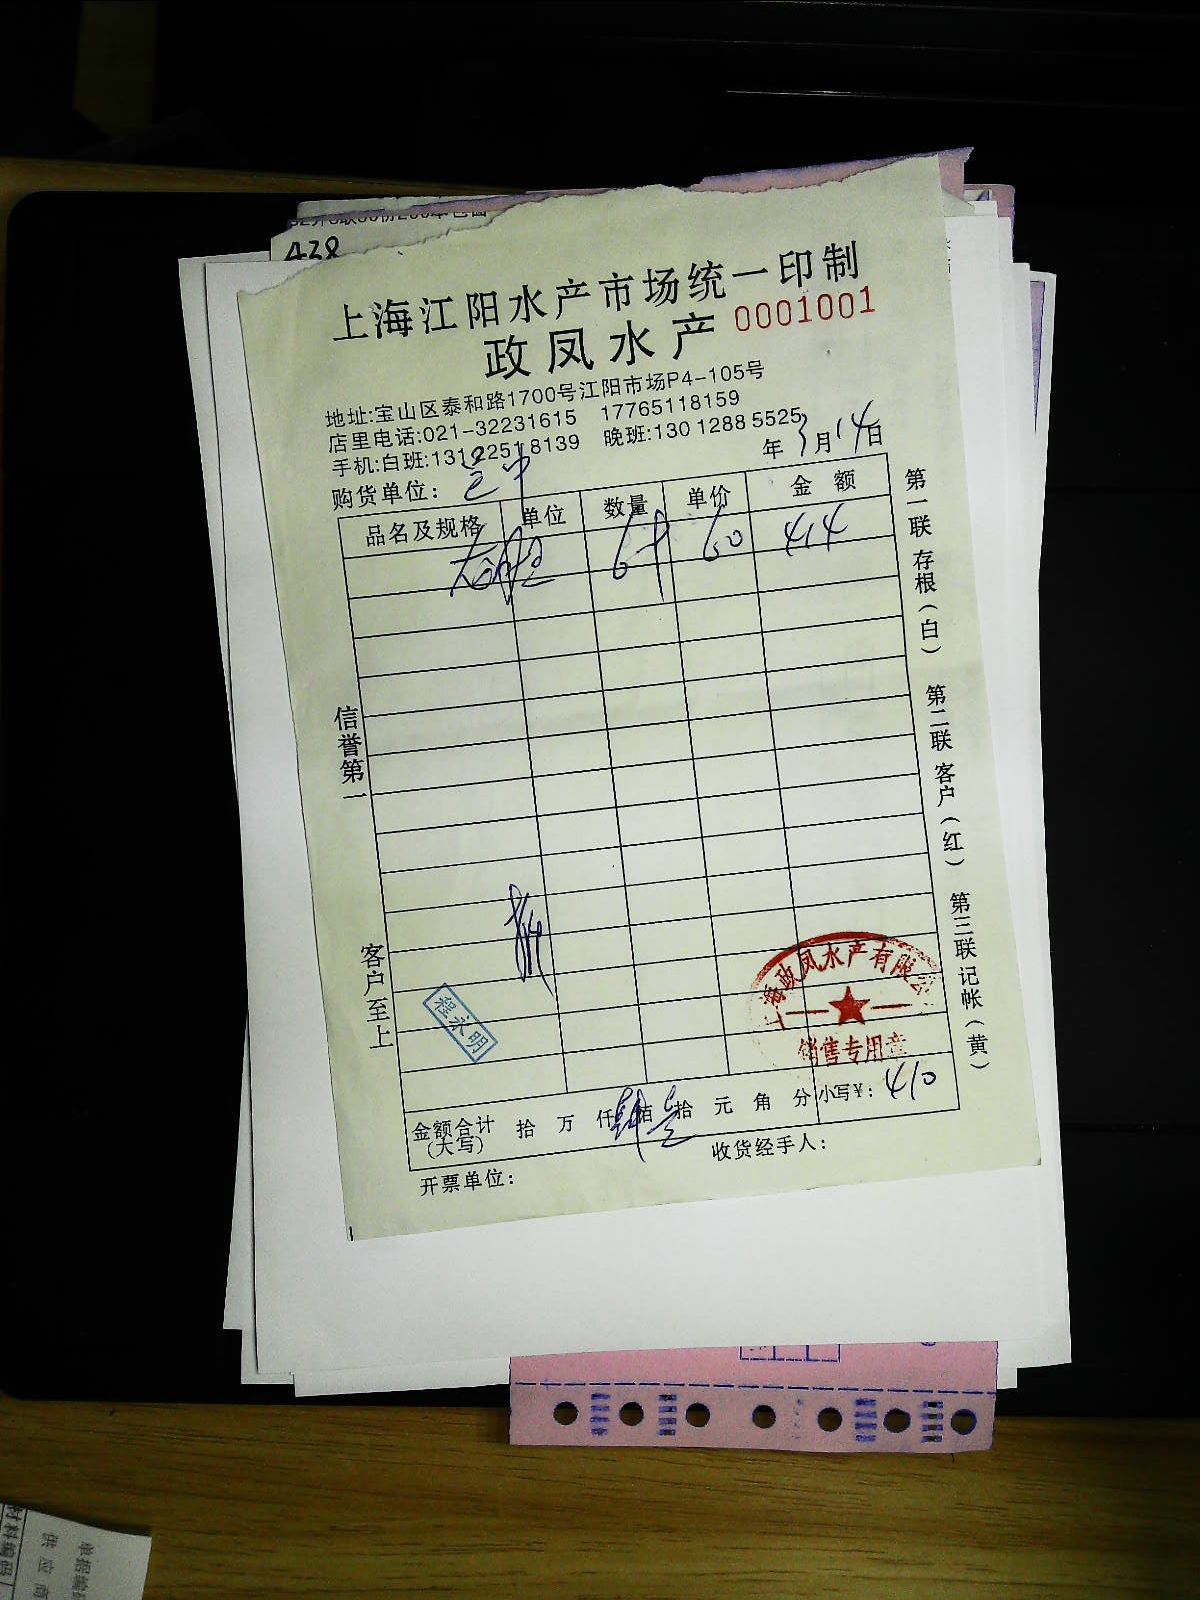 438
上海江阳水产市场统一印制
政凤水产 0001001
地址:宝山区泰和路1700号江阳市场P4-105号
店里电话:021-32231615 17765118159
手机:白班:13122518139 晚班:130 1288 5525
年3月14日
购货单位:
品名及规格 单位 数量 单价 金额
60 414
第一联存根(白) 第二联客户(红) 第三联记帐(黄)
信誉第一 客户至上
程永明
上海政凤水产有限公
销售专用章
金额合计(大写) 拾 万 仟 肆佰 壹拾 元 角 分 小写¥: 410
开票单位: 收货经手人:
单据编
供应商
材料编码